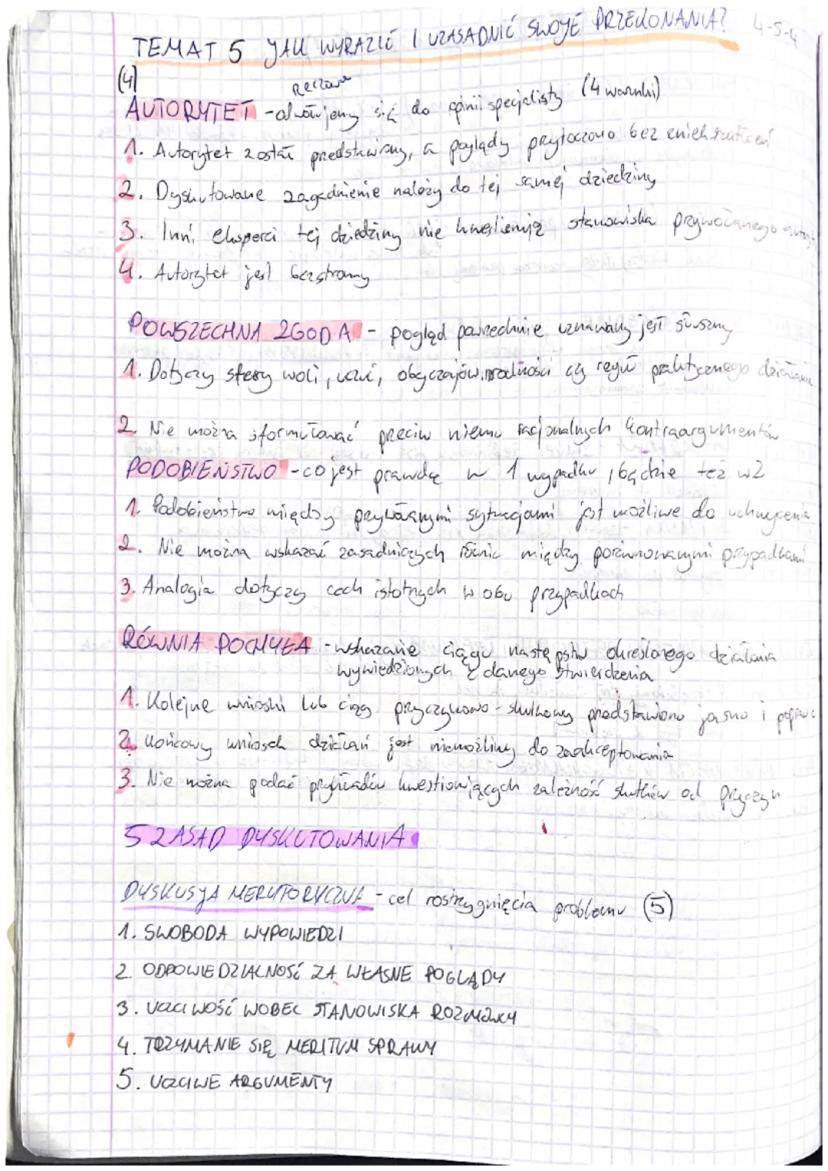 TEMAT 5 JAK WYRAZIĆ I UZASADNIĆ SWOJE PRZEKONANIA? 4-5-4
(4)
rzeczowe
AUTORYTET - odwołujemy się do opinii specjalisty (4 warunki)
1. Autorytet został przedstawiony, a poglądy przytoczono bez zniekształceń
2. Dyskutowane zagadnienie należy do tej samej dziedziny
3. Inni eksperci tej dziedziny nie kwestionują stanowiska przywołanego
4. Autorytet jest bezstronny
POWSZECHNA ZGODA - pogląd powszechnie uznawany jest słuszny
1. Dotyczy sfery woli, uczuć, obyczajów, moralności czy reguł praktycznego działania
2. Nie można sformułować przeciw niemu racjonalnych kontraargumentów
PODOBIEŃSTWO - co jest prawdą w 1 wypadku, będzie też w 2
1. Podobieństwo między przywołanymi sytuacjami jest możliwe do uchwycenia
2. Nie można wskazać zasadniczych różnic między porównowanymi przypadkami
3. Analogia dotyczy cech istotnych w obu przypadkach
RÓWNIA POCHYŁA - wskazanie ciągu następstw określonego działania
wywiedzionych z danego stwierdzenia
1. Kolejne wnioski lub ciąg przyczynowo-skutkowy przedstawiono jasno i
2. Końcowy wniosek działań jest niemożliwy do zaakceptowania
3. Nie można podać przykładów kwestionujących zależność skutków od przyczyn
5 ZASAD DYSKUTOWANIA
DYSKUSJA MERYTORYCZNA - cel rostrzygnięcia problemu (5)
1. SWOBODA WYPOWIEDZI
2. ODPOWIEDZIALNOŚĆ ZA WŁASNE POGLĄDY
3. UCZCIWOŚĆ WOBEC STANOWISKA ROZMÓWCY
4. TRZYMANIE SIĘ MERITUM SPRAWY
5. UCZCIWE ARGUMENTY